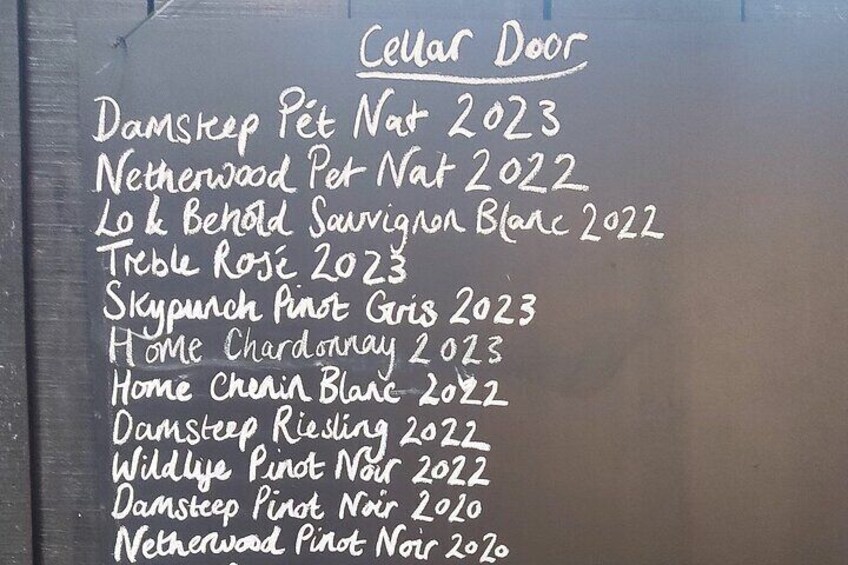 Cellar Door
Damsteep Pét Nat 2023
Netherwood Pet Nat 2022
Lo & Behold Sauvignon Blanc 2022
Treble Rosé 2023
Skypunch Pinot Gris 2023
Home Chardonnay 2023
Home Chenin Blanc 2022
Damsteep Riesling 2022
Wildlye Pinot Noir 2022
Damsteep Pinot Noir 2020
Netherwood Pinot Noir 2020